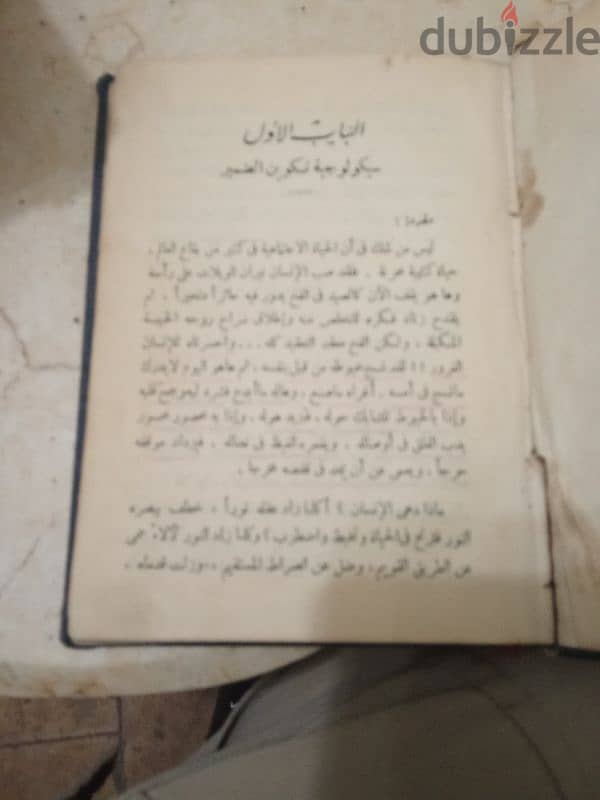 dubizzle
الباب الأول
سيكولوجية تكوين الضمير
مقدمة :
ليس من شك في أن الحياة الاجتماعية في كثير من بقاع العالم ،
حياة كئيبة محزنة . فلقد صب الإنسان نيران الويلات على رأسه
وها هو يقف الآن كالصيد في الفخ يدور فيه حائراً متعثراً . ثم
يقدح زناد فكره للتخلص منه وإطلاق سراح روحه الحبيسة
ولكن الفخ معقد التعقيد كله ... واحسرتاه للإنسان
المغرور !! لقد نسج خيوطه من قبل بنفسه ، ثم ها هو اليوم لا يدرك
ما نسج في أمسه .
وإذا بالخيوط تتشابك حوله ، فتزيد هوله . وإذا به محصور محصور
يدب القلق في أوصاله . في نضاله . فيزداد موقفه
حرجاً . من أن يجد في قفصه مخرجاً .
ماذا دهى الإنسان ؟ أكلما زاد عقله نوراً ، خطف بصره
النور فترنح في الحياة وتخبط واضطرب ؟ وكلما زاد النور لألاء عمى
عن الطريق القويم ، وضل عن الصراط المستقيم ، وزلت قدماه .